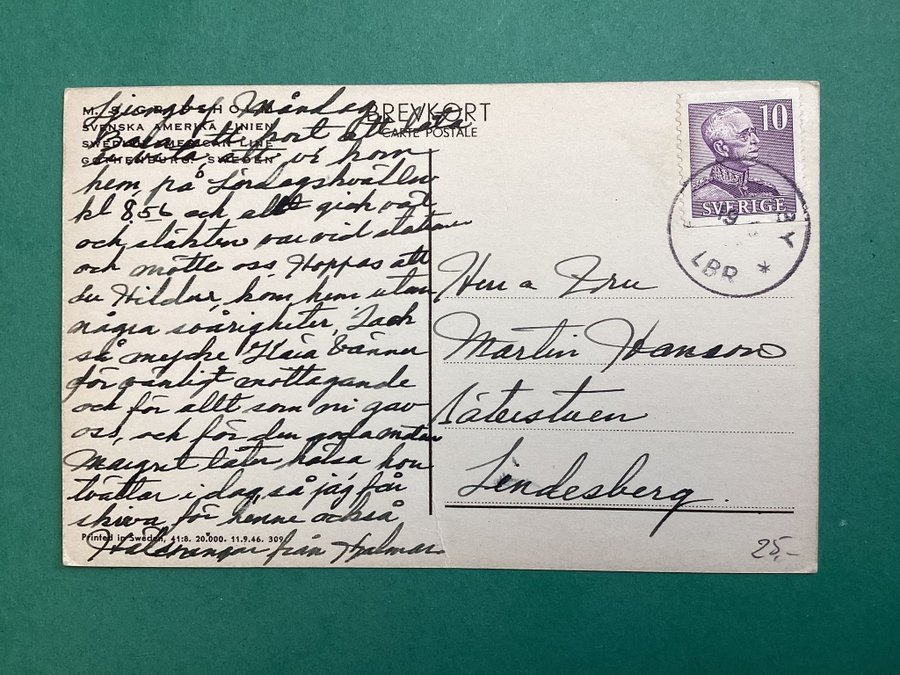 M.S. GRIPSHOLM
SVENSKA AMERIKA LINIEN
SWEDISH AMERICAN LINE
GOTHENBURG, SWEDEN
BREVKORT
CARTE POSTALE
Ljungby Måndag
Bara ett kort att tala
att vi kom
hem på Lördagskvällen
kl 8,56 och allt gick väl
och släkten var vid stationen
och mötte oss Hoppas att
du Hildur, kom hem utan
några svårigheter, Tack
så mycke Kära Vänner
för vänligt mottagande
och för allt som ni gav
oss, och för den goda maten
Margret låter hälsa hon
tvättar i dag, så jag får
skriva för henne också
Hälsningar från Hjalmar
Printed in Sweden, 41:8. 20.000. 11.9.46. 309
10
SVERIGE
9
BY
LBR *
Herr o Fru
Martin Hanson
Säterstuen
Lindesberg.
25,-